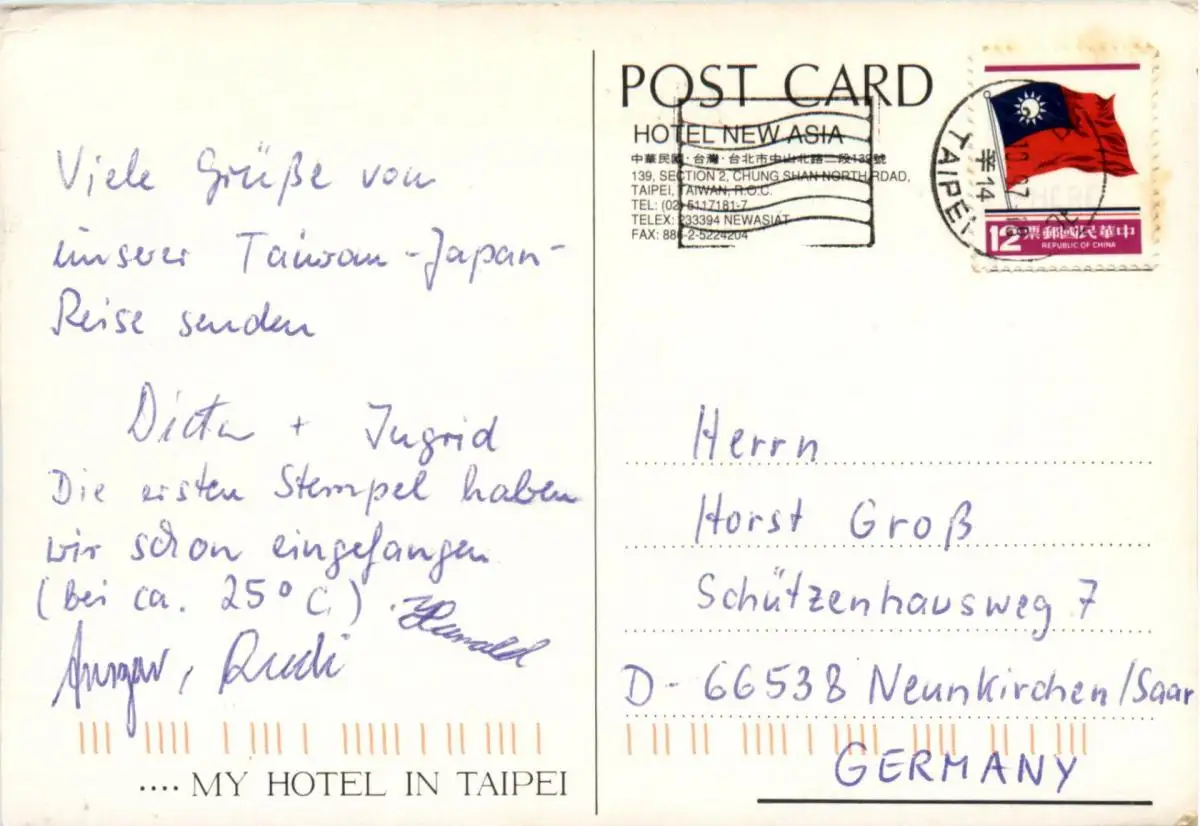 Viele Grüße von
unserer Taiwan-Japan-
Reise senden
Dieter + Ingrid
Die ersten Stempel haben
wir schon eingefangen
(bei ca. 25° C.). Harald
Ansgar, Rudi
.... MY HOTEL IN TAIPEI
POST CARD
HOTEL NEW ASIA
中華民國·台灣·台北市中山北路二段139號
139, SECTION 2, CHUNG SHAN NORTH RDAD,
TAIPEI, TAIWAN, R.O.C.
TEL: (02) 5117181-7
TELEX: 233394 NEWASIAT
FAX: 886-2-5224204
TAIPEI
14
12 票郵國民華中
REPUBLIC OF CHINA
Herrn
Horst Groß
Schützenhausweg 7
D-66538 Neunkirchen/Saar
GERMANY